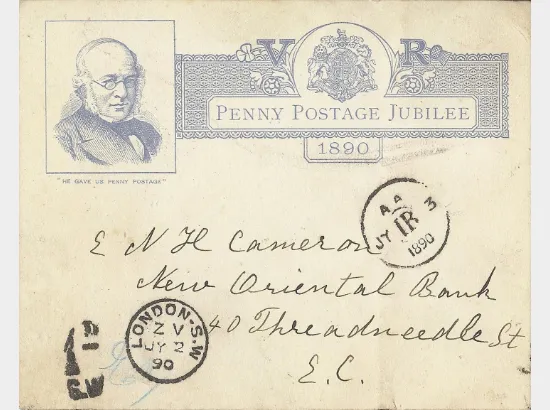 V R
PENNY POSTAGE JUBILEE
1890
"HE GAVE US PENNY POSTAGE"
AA
JY IR 3
1890
E N H Cameron
New Oriental Bank
40 Threadneedle St
E.C.
LONDON-S.W
Z V
JY 2
90